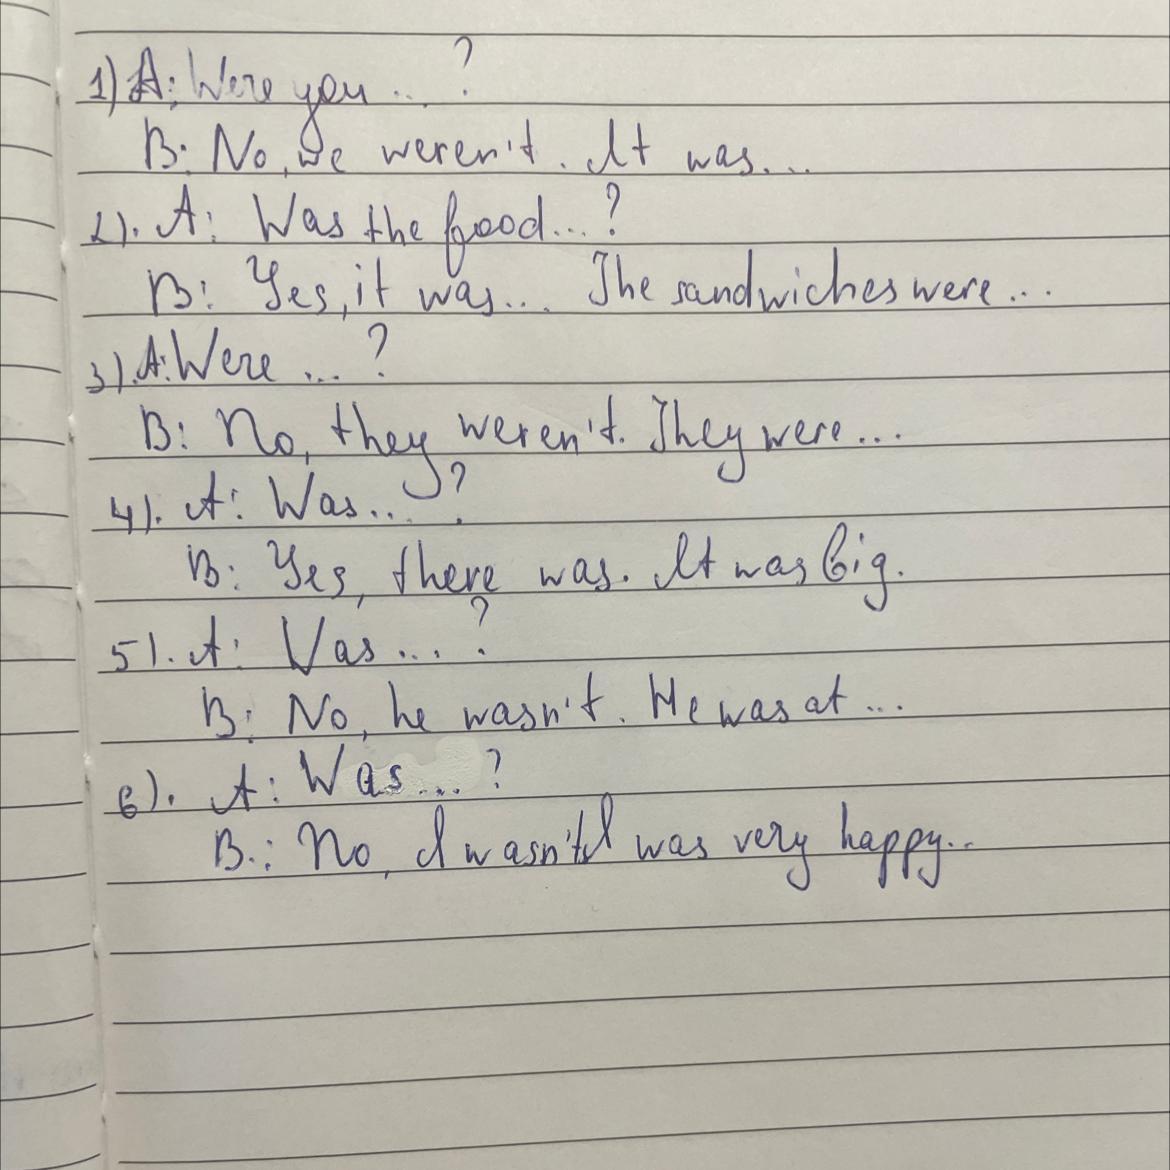 1) A: Were you ... ?
B: No, we weren't. It was...
2). A: Was the food...?
B: Yes, it was... The sandwiches were...
3). A: Were ... ?
B: No, they weren't. They were...
4). A: Was... ?
B: Yes, there was. It was big.
5). A: Was... ?
B: No, he wasn't. He was at ...
6). A: Was... ?
B.: No, I wasn't I was very happy..